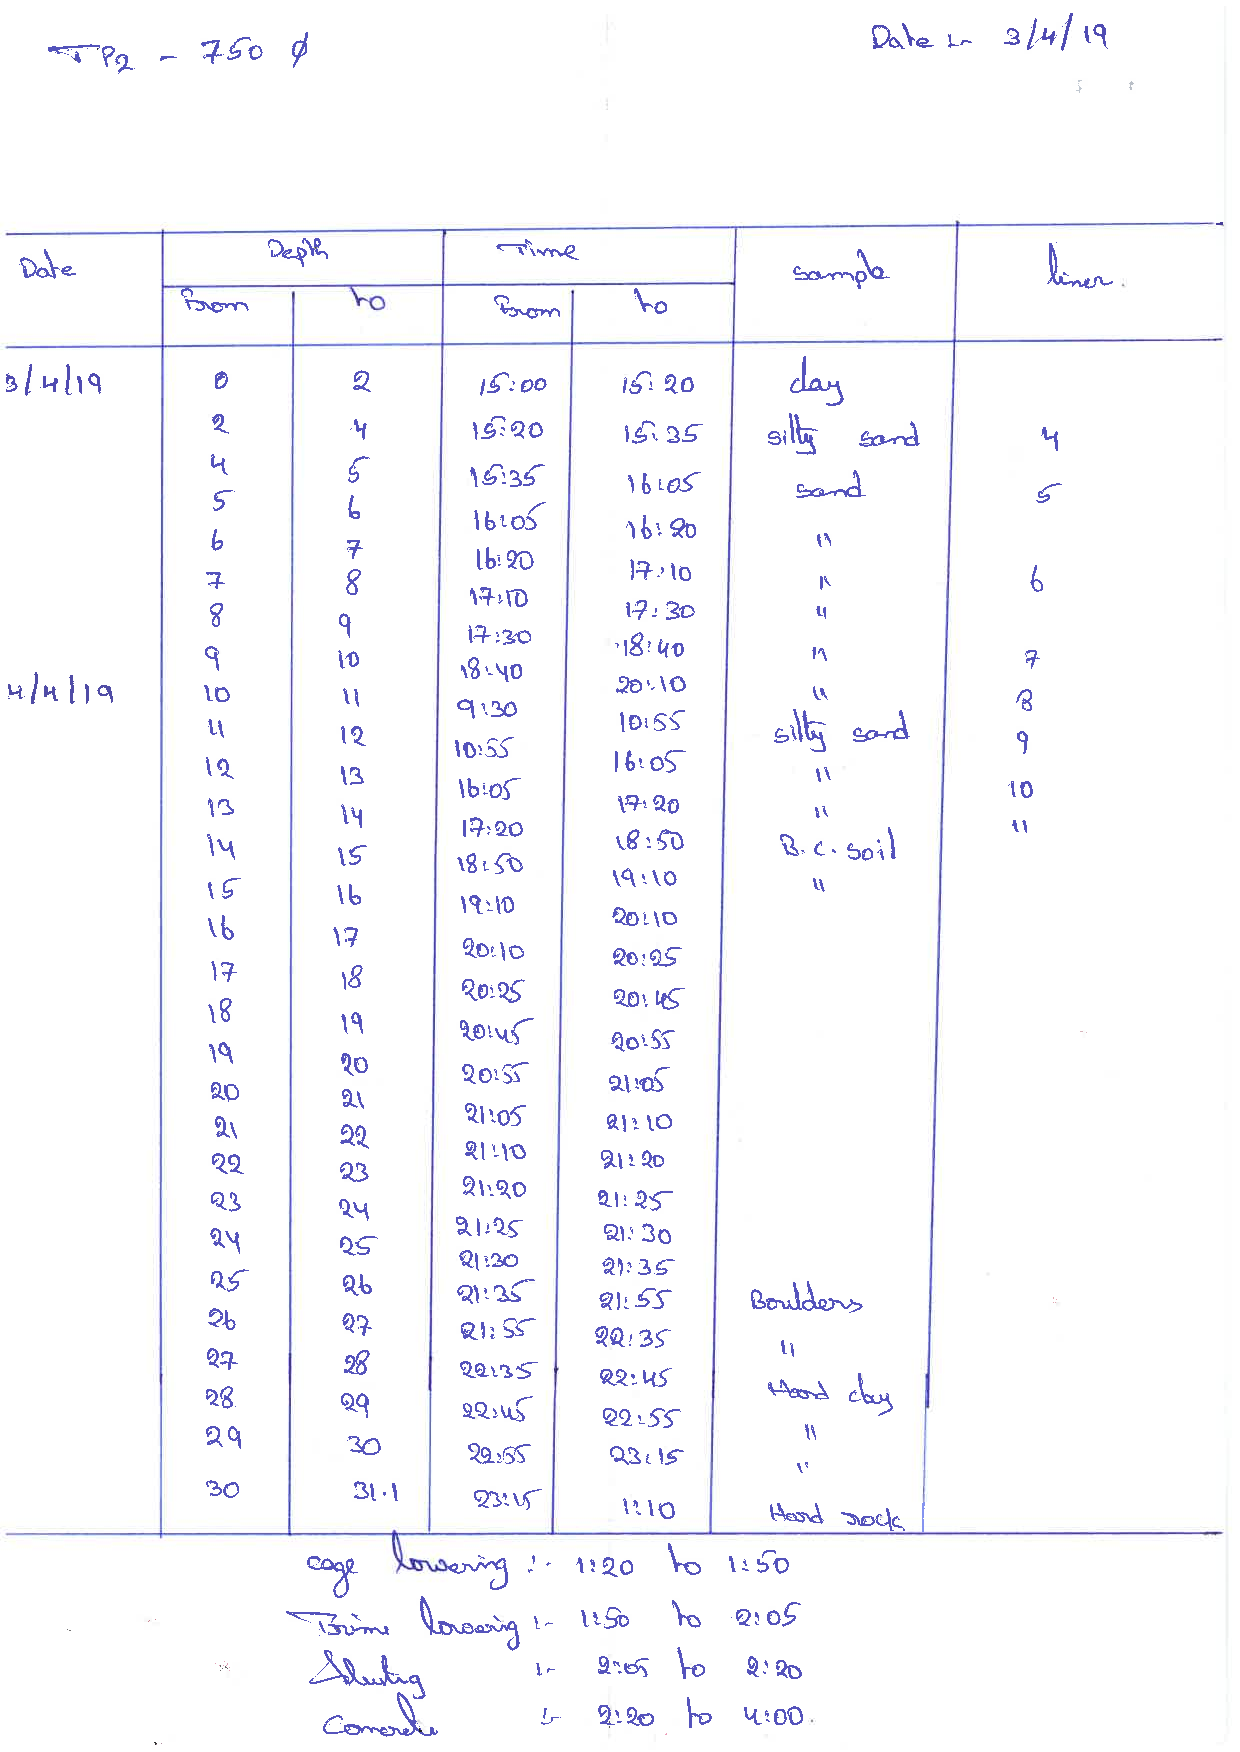 TP2 - 750 ϕ
Date :- 3/4/19
Date Depth Time Sample liner.
From to From to
3/4/19 0 2 15:00 15:20 clay
2 4 15:20 15:35 silty sand 4
4 5 15:35 16:05 sand 5
5 6 16:05 16:20 "
6 7 16:20 17:10 " 6
7 8 17:10 17:30 "
8 9 17:30 18:40 " 7
9 10 18:40 20:10 " 8
4/4/19 10 11 9:30 10:55 silty sand 9
11 12 10:55 16:05 " 10
12 13 16:05 17:20 " 11
13 14 17:20 18:50 B.C. soil
14 15 18:50 19:10 "
15 16 19:10 20:10
16 17 20:10 20:25
17 18 20:25 20:45
18 19 20:45 20:55
19 20 20:55 21:05
20 21 21:05 21:10
21 22 21:10 21:20
22 23 21:20 21:25
23 24 21:25 21:30
24 25 21:30 21:35
25 26 21:35 21:55 Boulders
26 27 21:55 22:35 "
27 28 22:35 22:45 Hard clay
28 29 22:45 22:55 "
29 30 22:55 23:15 "
30 31.1 23:15 1:10 Hard rock
cage lowering :- 1:20 to 1:50
Trime lowering :- 1:50 to 2:05
:- 2:05 to 2:20
Concrete :- 2:20 to 4:00.